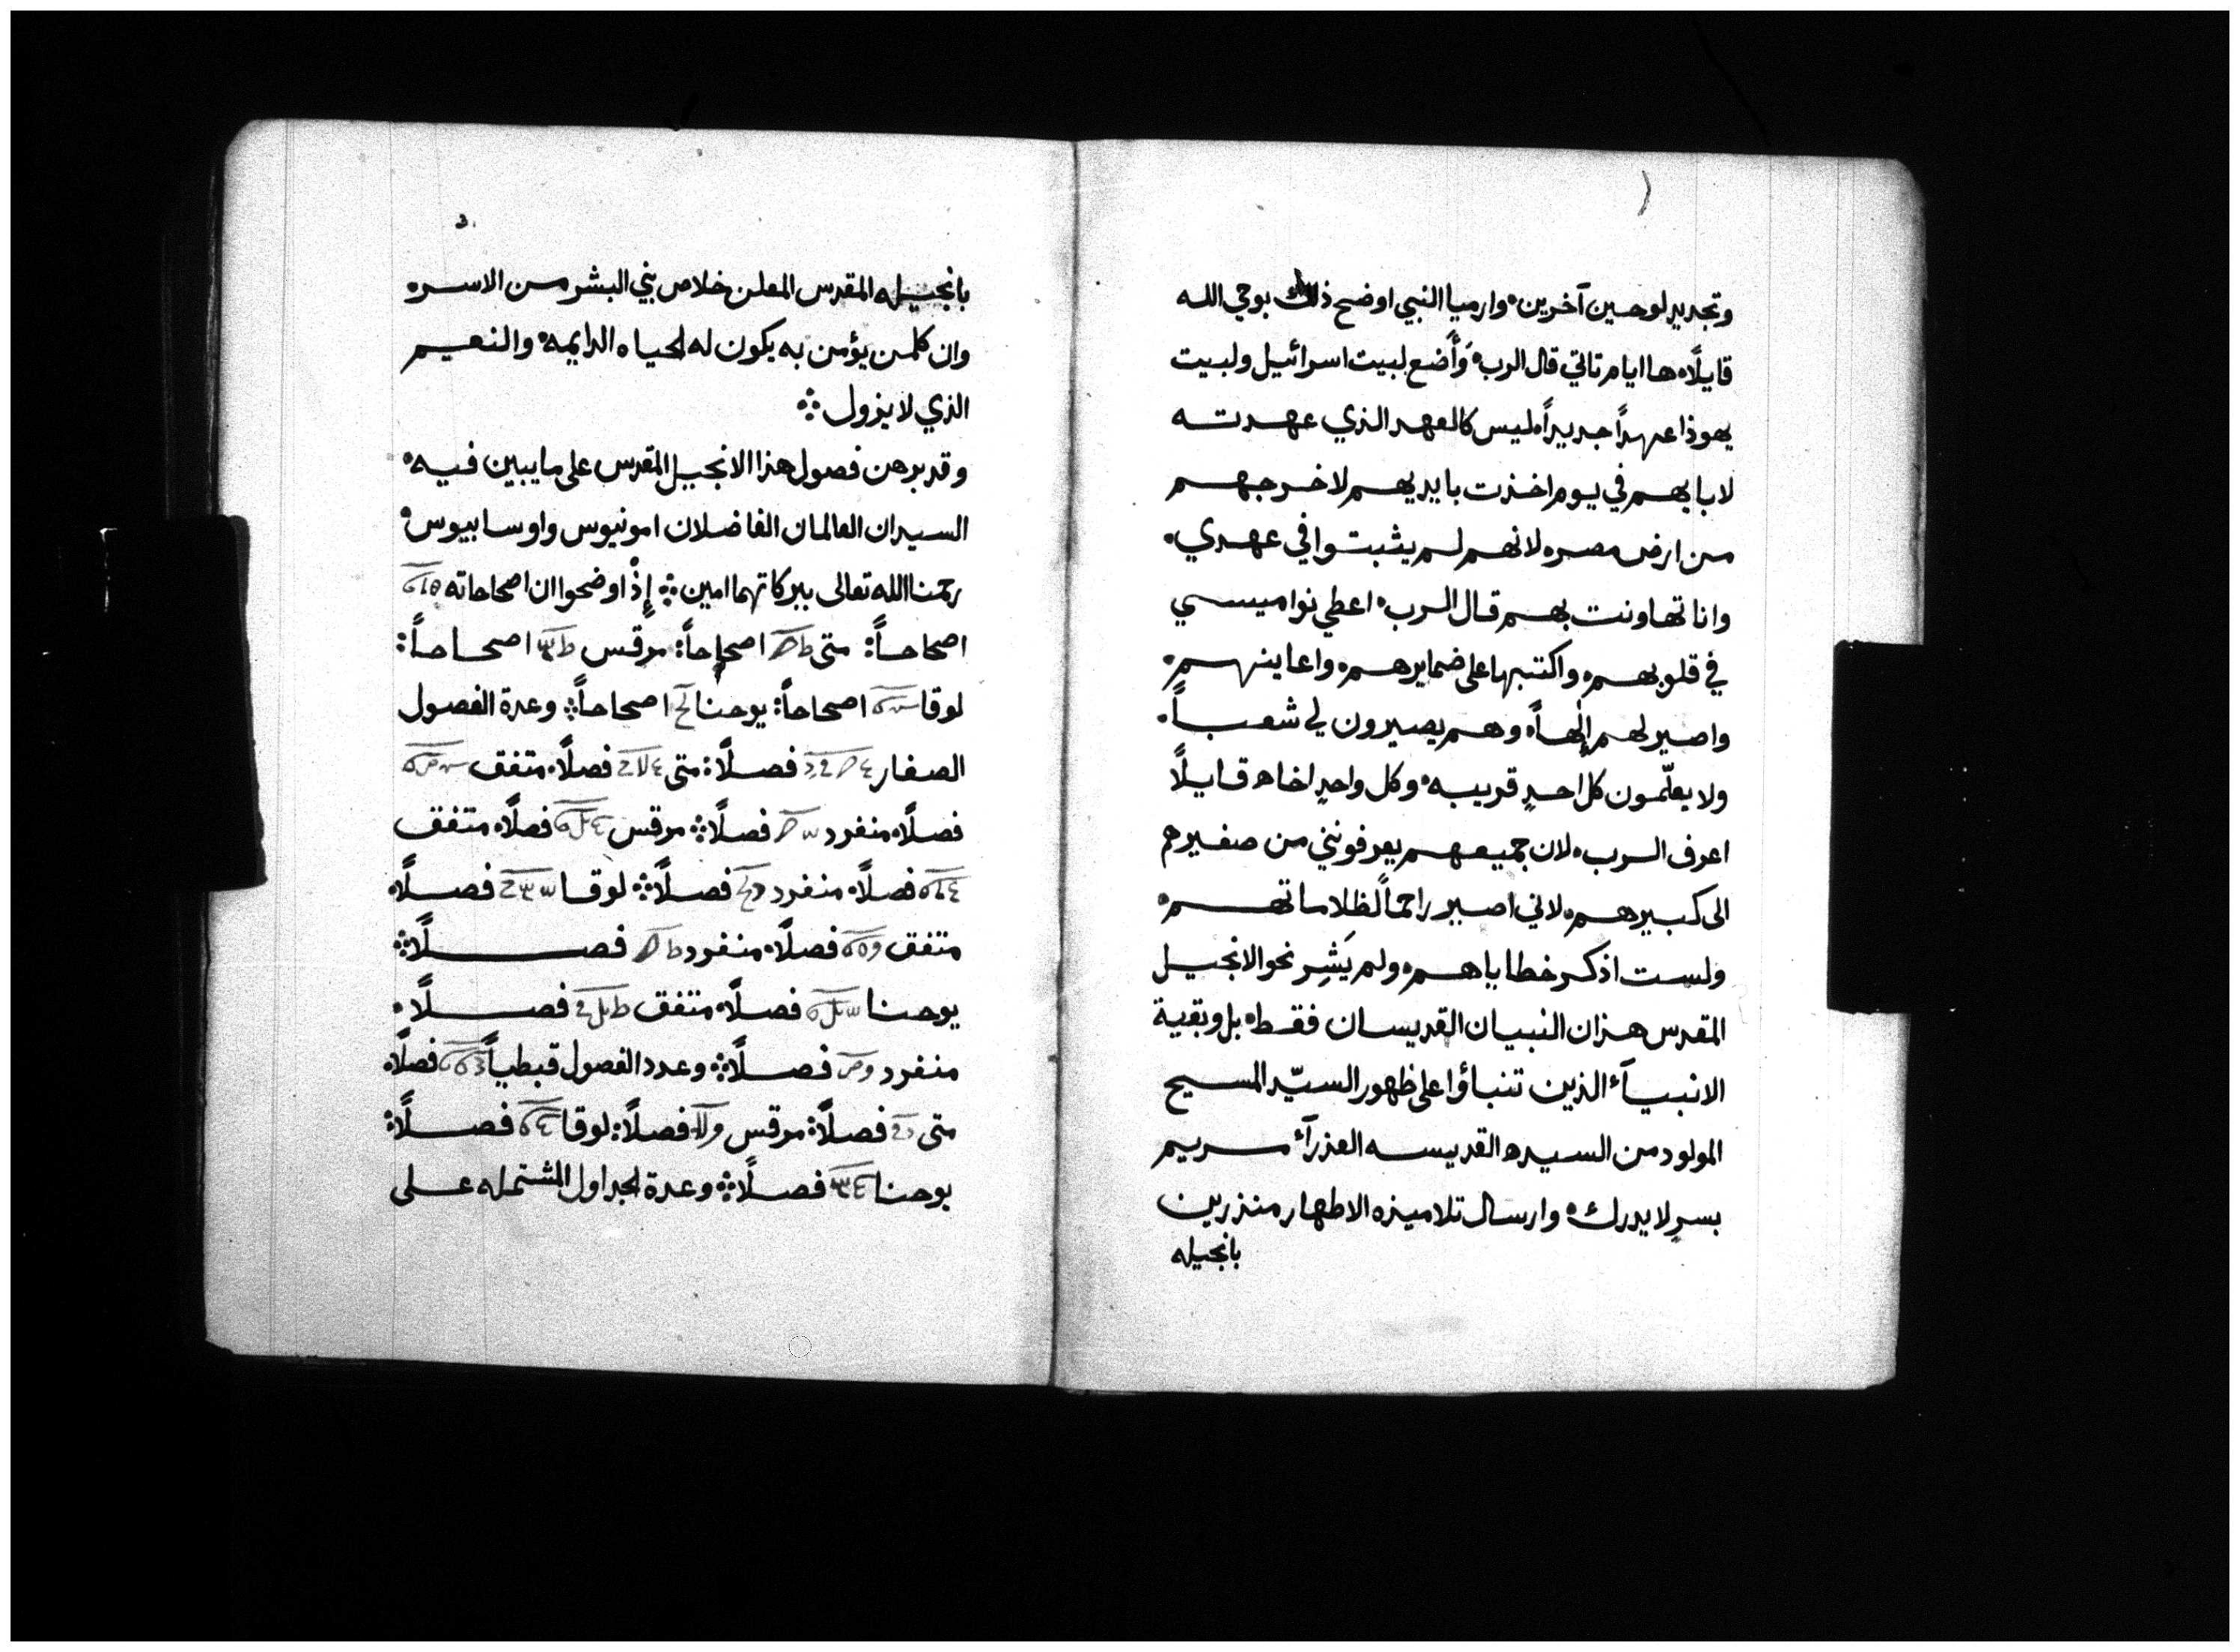 وتجديد لوحين آخرين ۰ وارميا النبي اوضح ذلك بوحي الله
قايلًا ۰ ها ايام تاتي قال الرب ۰ وَأَضع لبيت اسرائيل ولبيت
يهوذا عهدًا جديدًا ۰ ليس كالعهد الذي عهدته
لابايهم في يوم اخذت بايديهم لاخرجهم
من ارض مصر ۰ لانهم لم يثبتوا في عهدي ۰
وانا تهاونت بهم قال الرب ۰ اعطي نواميسي
في قلوبهم ۰ واكتبها على ضمايرهم ۰ واعاينهم ۰
واصير لهم إلهاً ۰ وهم يصيرون لي شعباً ۰
ولا يعلّمون كل احدٍ قريبه ۰ وكل واحدٍ اخاه قايلًا
اعرف الرب ۰ لان جميعهم يعرفونني من صغيرهم
الى كبيرهم ۰ لاني اصير راحمًا لظلاماتهم ۰
ولست اذكر خطاياهم ۰ ولم يَشِر نحو الانجيل
المقدس هذان النبيان القديسان فقط ۰ بل وبقية
الانبيآء الذين تنباؤا على ظهور السيّد المسيح
المولود من السيده القديسه العذرآء مريم
بسرٍ لا يدرك ۰ وارسال تلاميذه الاطهار منذرين
بانجيله
بانجيله المقدس المعلن خلاص بني البشر من الاسر ۰
وان كلمن يؤمن به يكون له الحياه الدايمه ۰ والنعيم
الذي لا يزول ܀
وقد برهن فصول هذا الانجيل المقدس على ما يبين فيه ۰
السيدان العالمان الفاضلان امونيوس واوسابيوس ۰
رحمنا الله تعالى ببركاتهما امين ܀ إِذْ اوضحوا ان اصحاحاته
اصحاحاً: متى اصحاحاً: مرقس اصحاحاً:
لوقا اصحاحاً: يوحنا اصحاحاً ܀ وعدة الفصول
الصغار فصلًا: متى فصلًا ۰ متفق
فصلًا ۰ منفرد فصلًا ܀ مرقس فصلًا ۰ متفق
فصلًا ۰ منفرد فصلًا ܀ لوقا فصلًا ۰
متفق فصلًا ۰ منفرد فصلًا ܀
يوحنا فصلًا ۰ متفق فصلًا ۰
منفرد فصلًا ܀ وعدد الفصول قبطياً فصلًا ۰
متى فصلًا: مرقس فصلًا: لوقا فصلًا:
يوحنا فصلًا ܀ وعدة الجداول المشتمله على